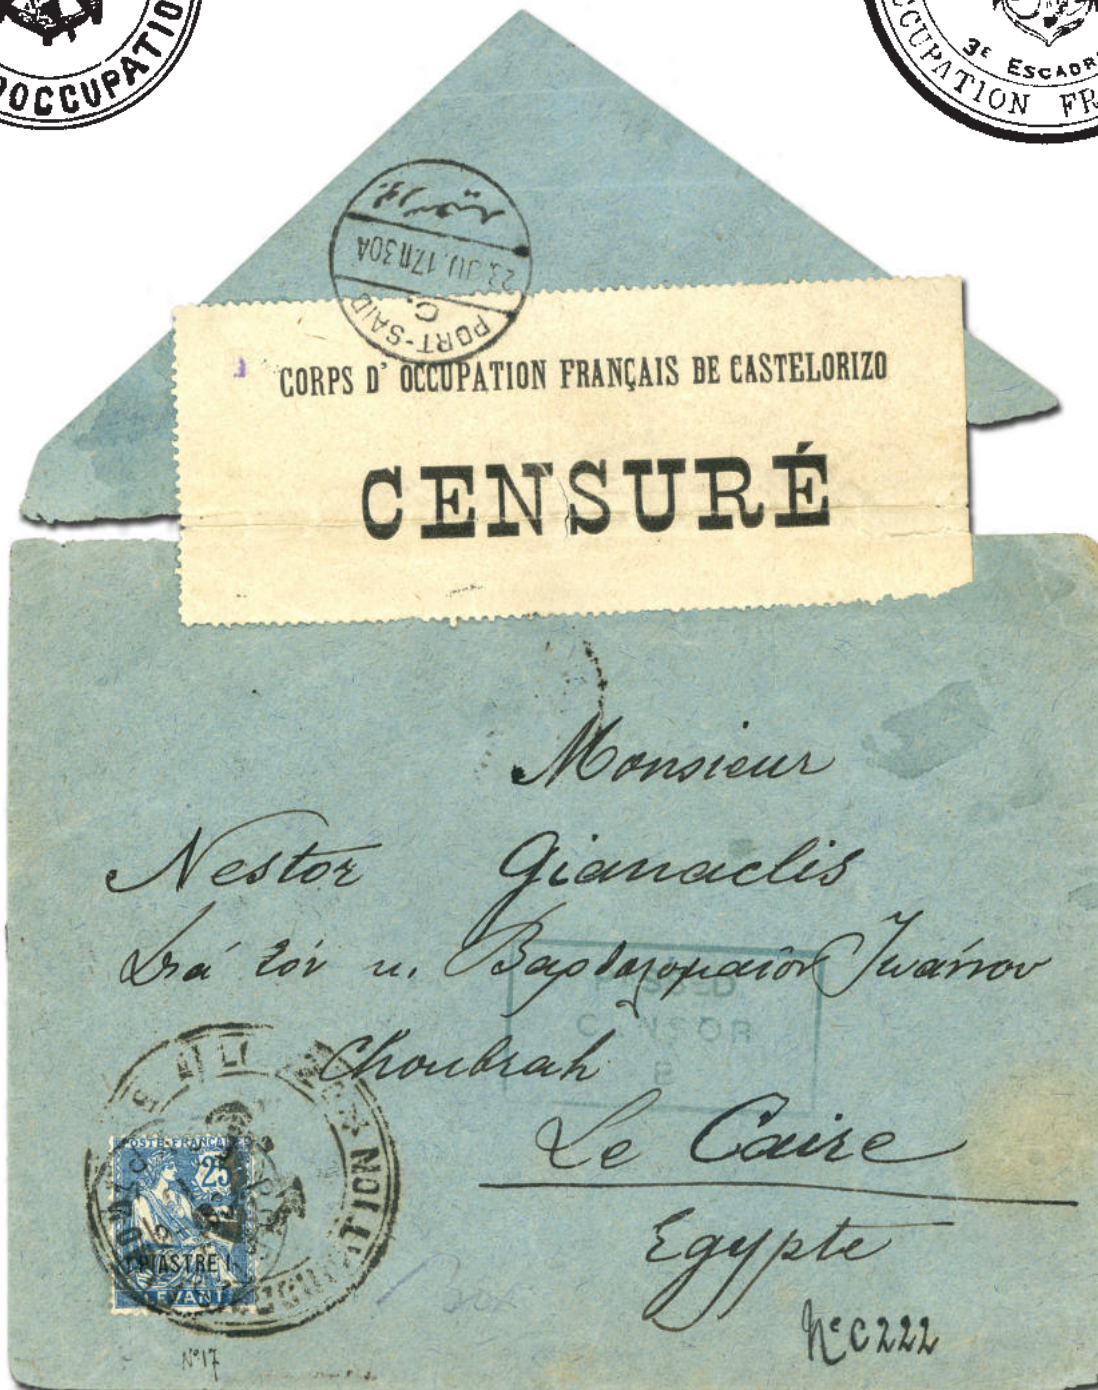 D'OCCUPATIO
3E ESCADR
OCCUPATION FR
PORT-SAID
C.
23.JU.17.1130A
CORPS D' OCCUPATION FRANÇAIS DE CASTELORIZO
CENSURÉ
Monsieur
Nestor Gianaclis
Διά τόν κ. Βαρθολομαῖον Ἰωάννου
PASSED
CENSOR
Choubrah
Le Caire
Egypte
D'OCCUPATION
POSTE FRANÇAISE
25
1 PIASTRE 1
LEVANT
N°17
N°C222